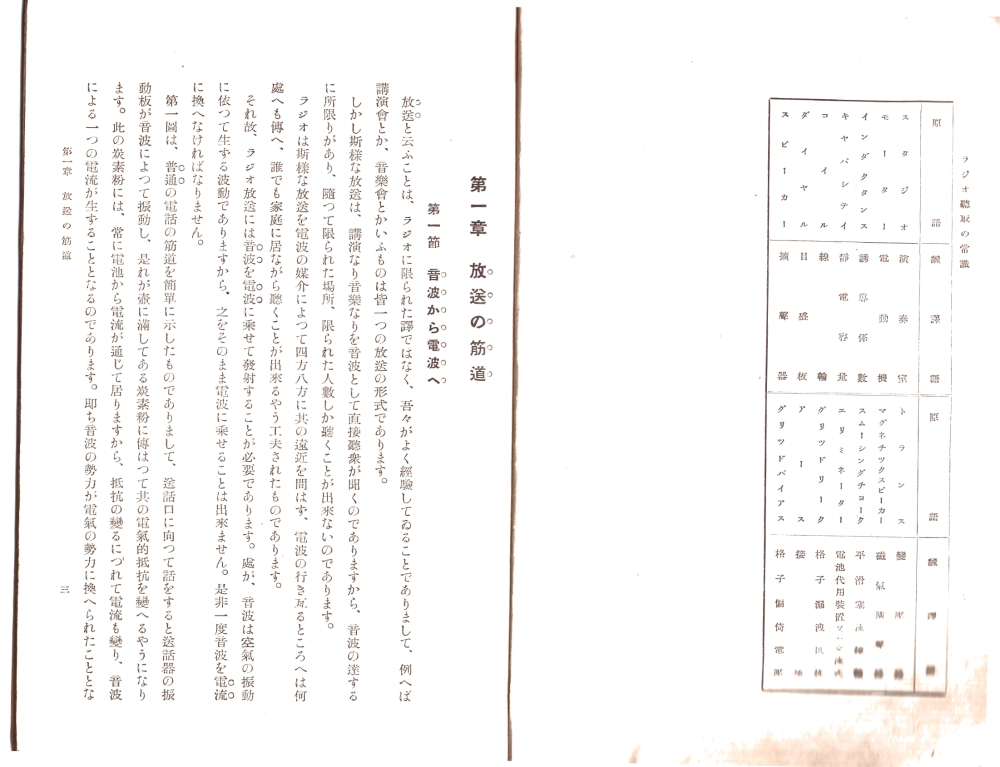 ラジオ聽取の常識
原語
譯語
原語
譯語
スタジオ
演奏室
トランス
變壓器
モーター
電動機
マグネチツクスピーカー
磁氣
インダクタンス
誘導係數
スムーシングチョーク
平滑塞流線輪
キャパシテイ
靜電容量
エリミネーター
電池代用裝置
コイル
線輪
グリツドリーク
格子漏洩
ダイヤル
目盛板
アース
接地
スピーカー
擴聲器
グリツドバイアス
格子偏倚電壓
第一章 放送の筋道
第一節 音波から電波へ
放送と云ふことは、ラジオに限られた譯ではなく、吾々がよく經驗してゐることでありまして、例へば
講演會とか、音樂會とかいふものは皆一つの放送の形式であります。
しかし斯樣な放送は、講演なり音樂なりを音波として直接聽衆が聞くのでありますから、音波の達する
に所限りがあり、隨つて限られた場所、限られた人數しか聽くことが出來ないのであります。
ラジオは斯樣な放送を電波の媒介によつて四方八方に其の遠近を問はず、電波の行き亙るところへは何
處へも傳へ、誰でも家庭に居ながら聽くことが出來るやう工夫されたものであります。
それ故、ラジオ放送には音波を電波に乘せて發射することが必要であります。處が、音波は空氣の振動
に依つて生ずる波動でありますから、之をそのまま電波に乘せることは出來ません。是非一度音波を電流
に換へなければなりません。
第一圖は、普通の電話の筋道を簡單に示したものでありまして、送話口に向つて話をすると送話器の振
動板が音波によつて振動し、是れが壺に滿してある炭素粉に傳はつて其の電氣的抵抗を變へるやうになり
ます。此の炭素粉には、常に電池から電流が通じて居りますから、抵抗の變るにつれて電流も變り、音波
による一つの電流が生ずることとなるのであります。即ち音波の勢力が電氣の勢力に換へられたこととな
第一章 放送の筋道
三